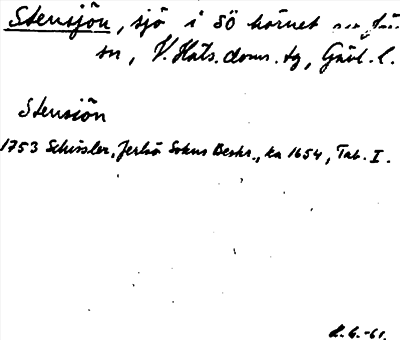 Stensjön, sjö i SÖ hörnet av
sn, V. Häls. doms. tg, Gävl. l.
Stensiön
1753 Schissler, Jerfsö Sokns Beskr., ka 1654, Tab. I.